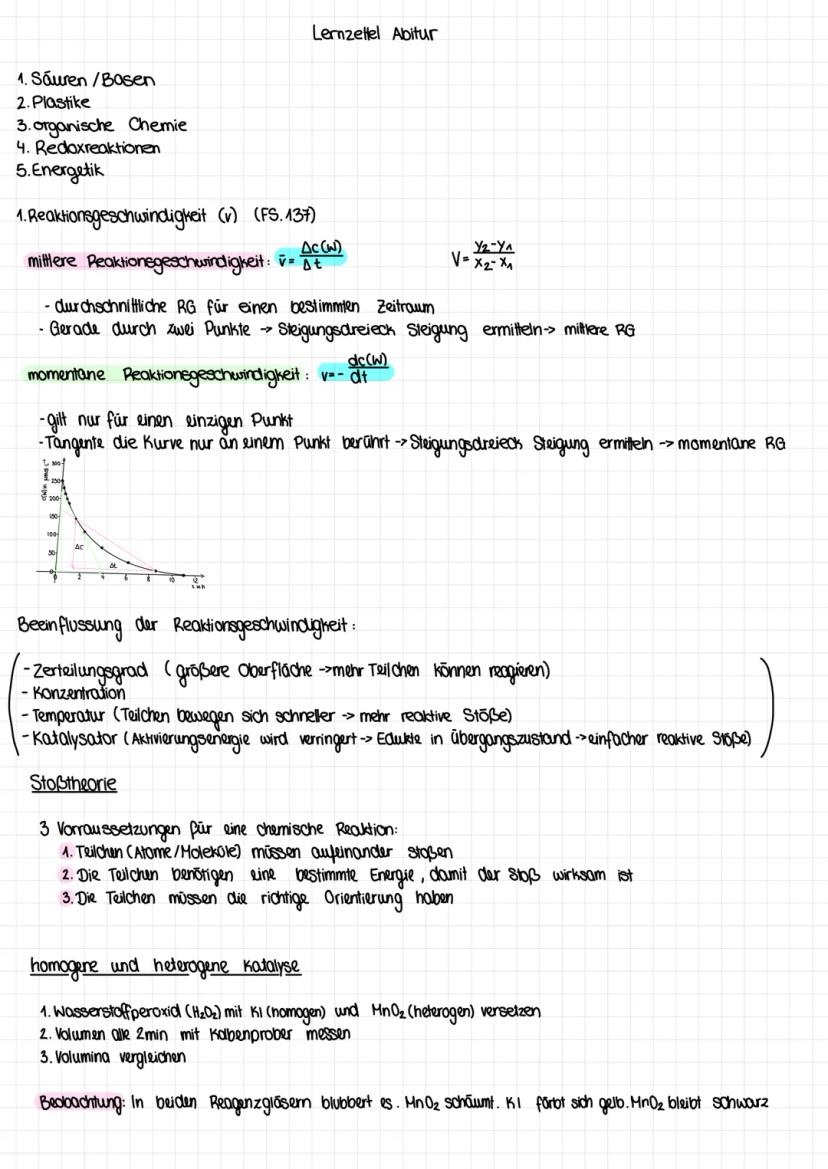 Lernzettel Abitur
1. Säuren / Basen
2. Plastike
3. organische Chemie
4. Redoxreaktionen
5. Energetik
1. Reaktionsgeschwindigkeit (v) (FS. 137)
mittlere Reaktionsgeschwindigkeit: v̄ = Δc(W) / Δt V = y₂-y₁ / x₂-x₁
- durchschnittliche RG für einen bestimmten Zeitraum
- Gerade durch zwei Punkte → Steigungsdreieck Steigung ermitteln → mittlere RG
momentane Reaktionsgeschwindigkeit: v = - dc(W) / dt
- gilt nur für einen einzigen Punkt
- Tangente die Kurve nur an einem Punkt berührt → Steigungsdreieck Steigung ermitteln → momentane RG
300
250
200
150
100
50
0
Δc
Δt
0 2 4 6 8 10 12
Beeinflussung der Reaktionsgeschwindigkeit:
- Zerteilungsgrad (größere Oberfläche → mehr Teilchen können reagieren)
- Konzentration
- Temperatur (Teilchen bewegen sich schneller → mehr reaktive Stöße)
- Katalysator (Aktivierungsenergie wird verringert → Edukte in Übergangszustand → einfacher reaktive Stöße)
Stoßtheorie
3 Vorraussetzungen für eine chemische Reaktion:
1. Teilchen (Atome/Moleküle) müssen aufeinander stoßen
2. Die Teilchen benötigen eine bestimmte Energie, damit der Stoß wirksam ist
3. Die Teilchen müssen die richtige Orientierung haben
homogene und heterogene Katalyse
1. Wasserstoffperoxid (H₂O₂) mit KI (homogen) und MnO₂ (heterogen) versetzen
2. Volumen alle 2min mit Kolbenprober messen
3. Volumina vergleichen
Beobachtung: In beiden Reagenzgläsern blubbert es. MnO₂ schäumt. KI färbt sich gelb. MnO₂ bleibt schwarz